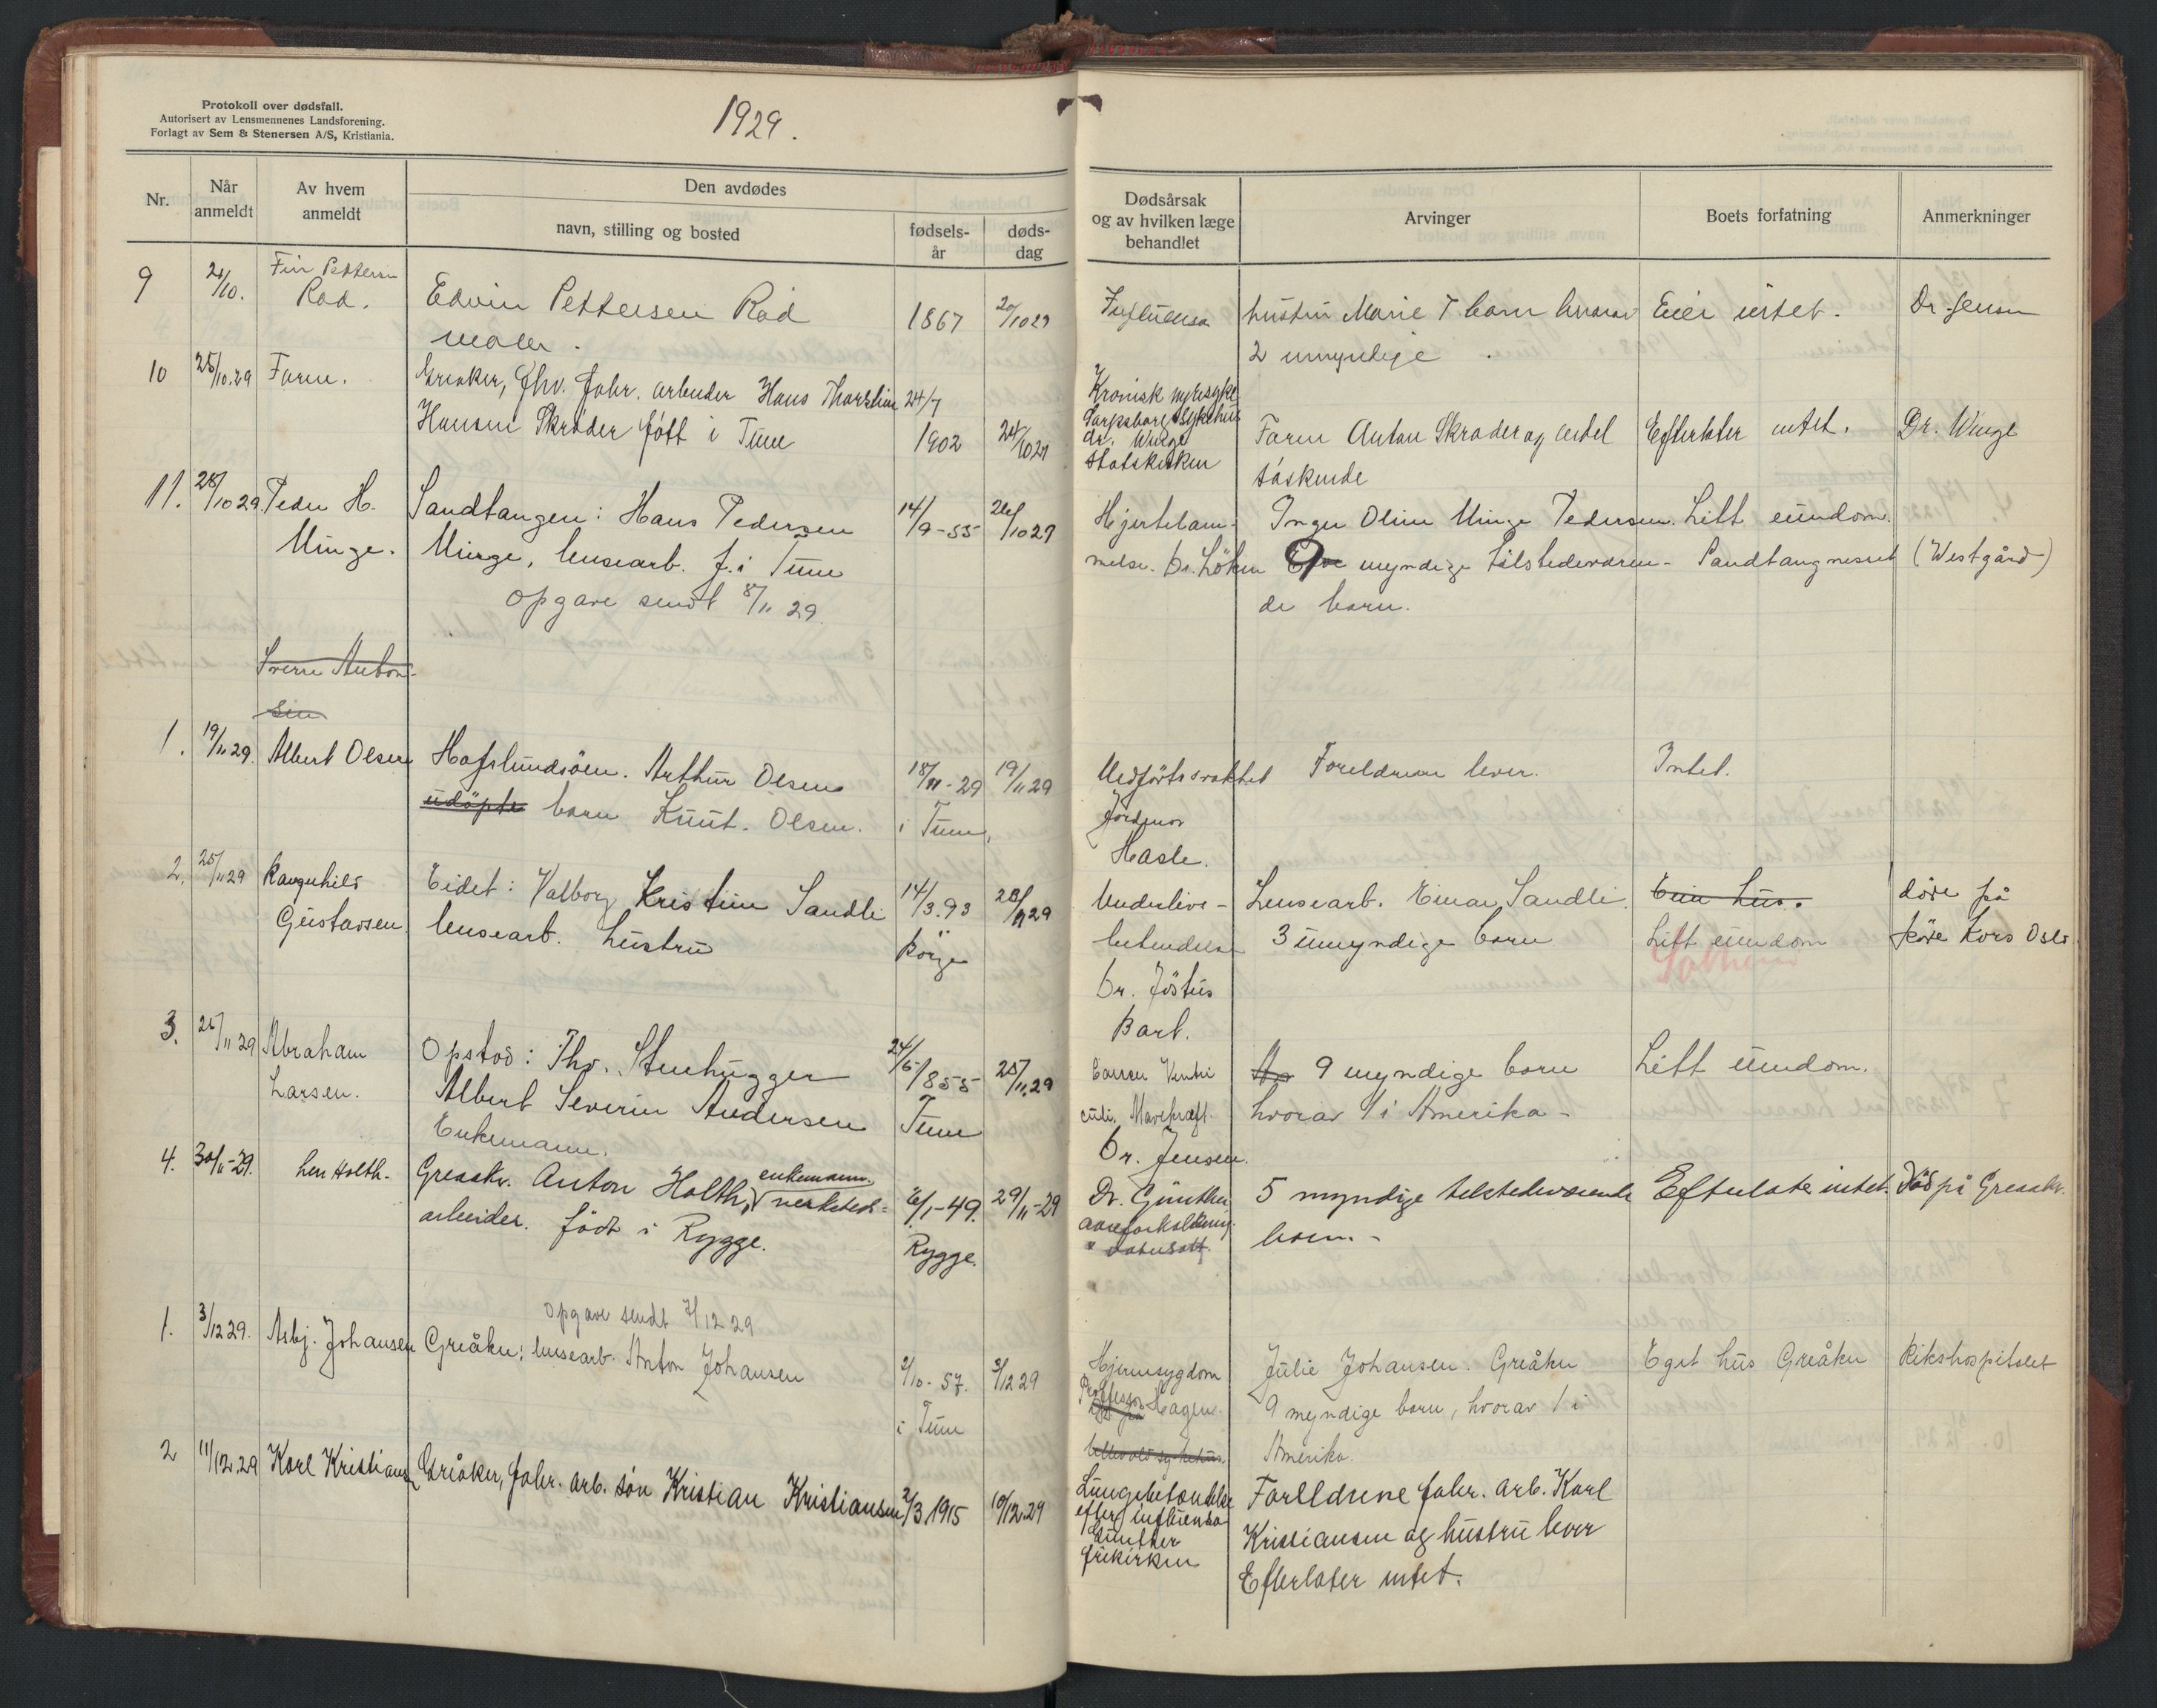 Protokoll over dødsfall.
Autorisert av Lensmennenes Landsforening.
Forlagt av Sem & Stenersen A/S, Kristiania.
1929.
Nr.
Når anmeldt
Av hvem anmeldt
Den avdødes
navn, stilling og bosted
fødsels-år
døds-dag
Dødsårsak og av hvilken læge behandlet
Arvinger
Boets forfatning
Anmerkninger
9 21/10. Finn Pettersen Edvin Pettersen Rød 1867 20/10 29 Influensa hustru Marie 7 barn hvorav Eier intet. Dr. Jensen
Rød. maler. 2 umyndige.
10 25/10.29 Faren. Greaker, fhv. fabr. arbeider Hans Thorstein 24/7 Kronisk nyresyke
Hansen Skrøder født i Tune 1902 24/10 29 Sarpsborg sykehus Faren Anton Skrøder og endel Efterlater intet. Dr. Winge
dr. Winge
Statskirken søskende
11. 28/10 29. Peder H. Sandtangen: Hans Pedersen 14/9-55 26/10 29 Hjertelam- Inger Oline Minge Pedersen. Litt eiendom.
Minge. Minge, lensearb. f. i Tune melse. Dr. Löken 9 myndige tilstedeværen- Sandtangneset (Westgård)
opgave sendt 8/11 29. de barn.
Sverre Anton-
sen
1. 19/11 29. Albert Olsen Hafslundsöen. Arthur Olsens 18/11-29 19/11 29 Medförts svakhet Foreldrene lever. Intet.
udöpte barn Knut. Olsen. i Tune, Jordmor
Hasle.
2. 25/11 29 Ragnhild Eidet: Valborg Kristine Sandli 14/3.93 23/11 29 Underlivs- Lensearb. Einar Sandli. Eiin hus. döde på
Gustavsen. lensearb. hustru Börge betendelse 3 umyndige barn Litt eiendom Röde Kors Oslo.
Dr. Jöstus
Bart.
3. 25/11 29 Abraham Opstad: Fhv. Stenhugger 24/5 1855 25/11.29 9 myndige barn Litt eiendom.
Larsen. Albert Severin Andersen Tune Mavekræft. hvorav 1 i Amerika-
Enkemann. Dr. Jensen.
4. 30/11-29. Greaaker. Anton Holth, enkemann. verksteds- 6/1-49. 29/11-29 Dr. Günther 5 myndige tilstedeværende Efterlater intet. Död på Greaaker.
arbeider. født i Rygge. Rygge. aareforkalkning barn.-
opgave sendt 7/12 29
1. 3/12 29. Asbj. Johansen Greåker: lensearb. Anton Johansen 2/10-57. 3/12 29 Hjernesygdom Julie Johansen. Greåker Eget hus Greåker Rikshospitalet
i Tune Professor Hagen. 9 myndige barn, hvorav 1 i
Amerika.
2 11/12.29 Karl Kristiansen Greåker, fabr. arb. søn Kristian Kristiansen 2/3 1915 10/12.29 Lungebetændelse Forelldrene fabr. arb. Karl
efter influensa Kristiansen og hustru lever
Günther
frikirken Efterlater intet.